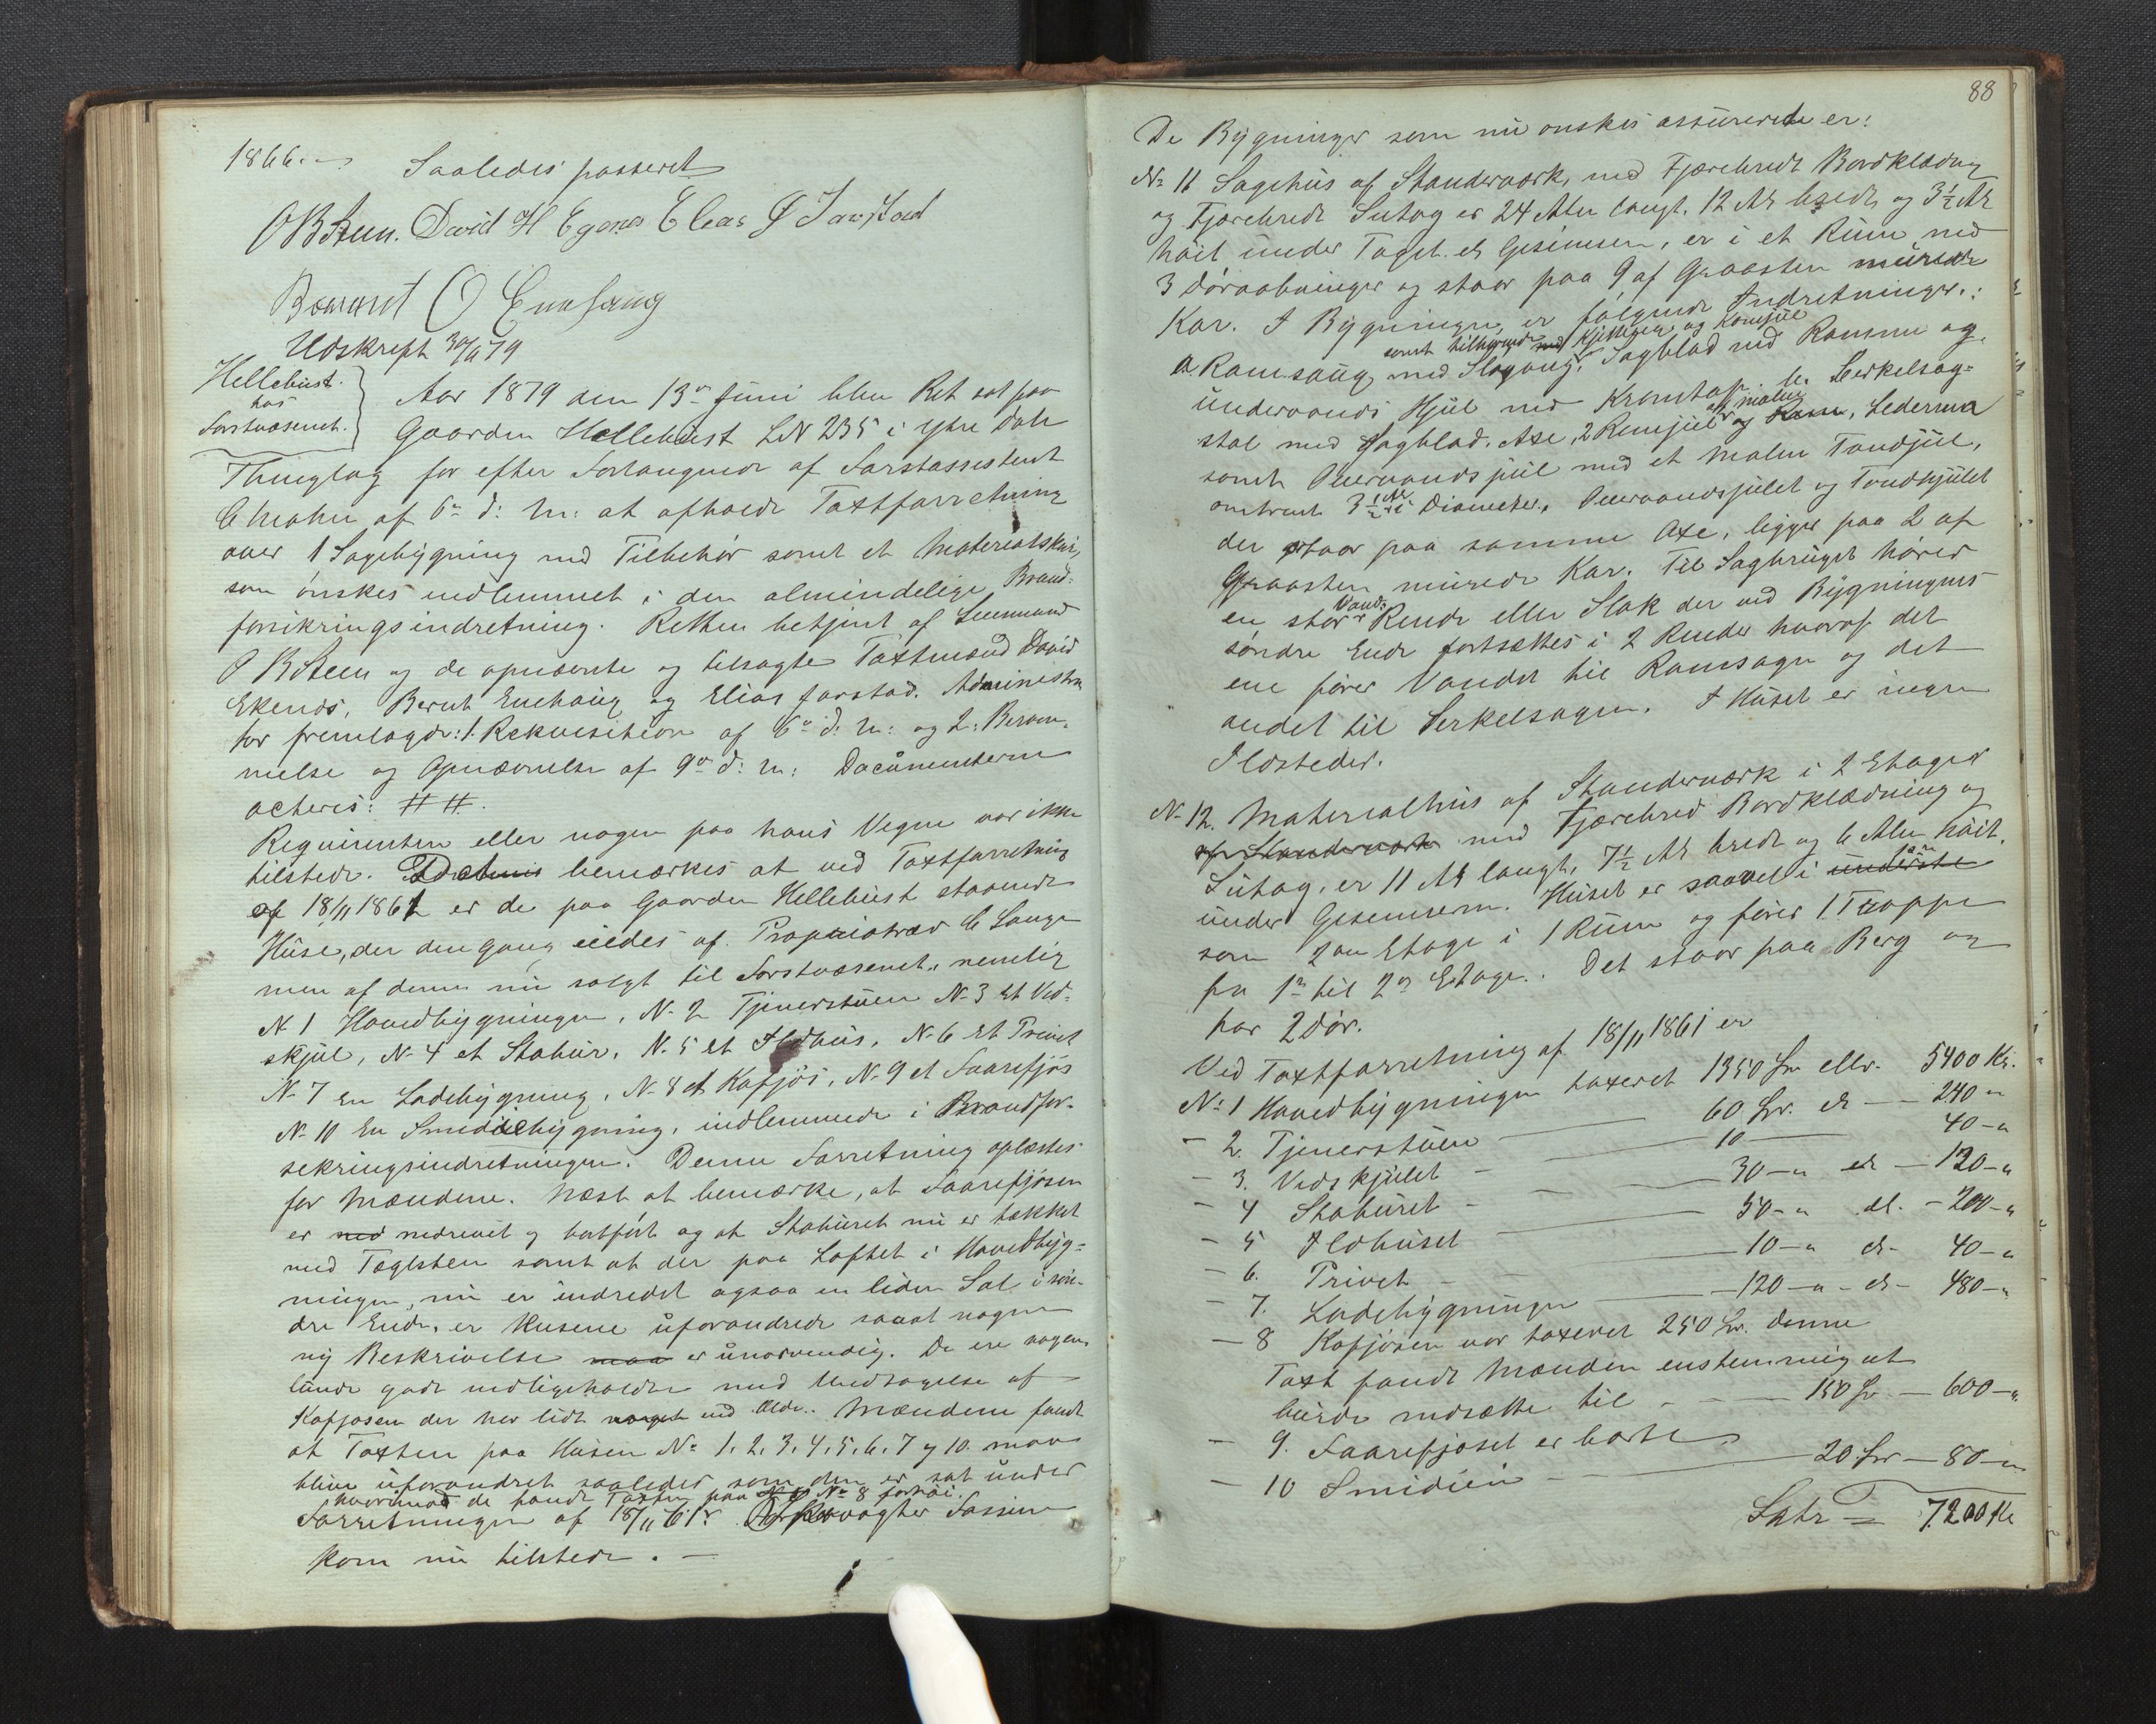 1866.
Saaledes passeret
O B Steen. David H Egenes Elias J Jarstad
Berent O Enehaug
Udskrift 30/6 79
Hellebust.
hos
Forstvæsenet.
Aar 1879 den 13de Juni blev Ret sat paa
Gaarden Hellebust LN 235 i ytre Dale
Thinglag for efter Forlangende af Forstassistent
C Mohn af 6te d: M: at afholde Taxtforretning
over 1 Sagebygning med Tilbehör samt et Materialskur,
som önskes indlemmet i den almindelige Brand-
forsikringsindretning. Retten betjent af Lensmand
O B Steen og de opnævnte og tilsagte Taxtmænd David
Ekenes, Bernt Enehaug og Elias Jarstad. Administra
tor fremlagde: 1. Rekvisition af 6te d: M: og 2: Beram-
melse og Opnævnelse af 9de d: M: Documenterne
acteres: # #.
Requirenten eller nogen paa hans Vegne var ikke
tilstede. bemærkes at ved Taxtforretning
af 18/11 1861 er de paa Gaarden Hellebust staaende
Huse, der den gang eiedes af Proprietær C Lange
men af denne nu solgt til Forstvæsenet, nemlig
N 1 Hovedbygningen, N- 2 Tjenerstuen N- 3 Et Ved-
skjul, N- 4 et Stabur, N- 5 Et Ildhus, N- 6 Et Privet
N- 7 En Ladebygning, N- 8 et Kofjös, N- 9 et Faarefjös
N- 10 En Smidiebygning, indlemmede i Brandfor-
sekringsindretningen. Denne Forretning oplæstes
for Mændene. Næst at bemærke, at Faarefjösen
er ned nedrevet og bortfört og at Staburet nu er tækket
med Taglsten samt at der paa Loftet i Hovedbyg-
ningen, nu er indredet ogsaa en liden Sal i sön-
dre Ende, er Husene uforandrede saaat nogen
ny Beskrivelse maa er unødvendig. De ere nogen-
lunde godt vedligeholdte med Undtagelse af
Kofjøsen der har lidt noget ved Ælde. Mændene fandt
at Taxten paa Husen No 1, 2, 3, 4, 5, 6, 7 og 10. maa
blive uforandret saaledes som den er sat under
hvorimod de fandt Taxten paa No 8 forhöi.
Forretningen af 18/11 61. Skovvogter
kom nu tilstede. —
88
De Bygninger som nu onskes assurerede er:
No 11 Sagehus af Standerværk, med Fjærebredt Bordklædning
og Fjærebredt Sutag er 24 Alen langt, 12 Al bredt, og 3½ Al
höit under Taget. el Gesimsen, er i et Rum med
3 döraabninger og staar paa 9 af Graasten murede
Kar. I Bygningen er fölgende Indretninger.:
samt tilhørende med Kjettinger og Kamjul
a Ramsaug med Slagang, Sagblad med Ramme og
undervands Hjul med Kromtap. b. Serkelsag-
stol med Sagblad. Axe, 2 Remjul af malm og Rem, Lederrem
samt Overvandsjul med et Malm Tandjul,
omtrent 3½ Al i Diameter, Overvandsjulet og Tandhjulet
der staar paa samme Axe, ligger paa 2 af
Graasten murede Kar. Til Sagbruget hörer
en stor Vand- Rende eller Slok der ved Bygningens
söndre Ende fortsættes i 2 Render hvoraf det
ene förer Vandet til Ramsagen og det
andet til Serkelsagen. I Huset er ingen
Ildsteder.
N- 12. Materialhus af Standerværk i 2 Etager
af Standerværk med Fjærebred Bordklædning og
Sutag, er 11 Al langt, 7½ Al bredt og 6 Alen höit
under Gesemsern. Huset er saavel i underste 1ste
som 2den Etage i 1 Rum og förer 1 Trappe
fra 1ste til 2den Etage. Det staar paa Berg og
har 2 dör.
Ved Taxtforretning af 18/11 1861 er
No 1 Hovedbygningen taxeret 1350 Spr eller 5400 Kr.
— 2. Tjenerstuen — 60 Spr. el — 240 "
— 3. Vedskjulet — 10 — 40 — "
— 4 Staburet — 30 — " el — 120 — "
— 5 Ildhuset — 50 — " el. — 200 — "
— 6. Privet — 10 — " el — 40 — "
— 7. Ladebygningen — 120 — " — el — 480 — "
— 8 Kofjösen var taxeret 250 Spr. denne
Taxt fandt Mændene enstemmig at
burde nedsætte til — 150 Spr — 600 — "
— 9. Faarefjøset er borte
— 10 Smidien — 20 Spr — 80 — "
Latr = 7200 Kr